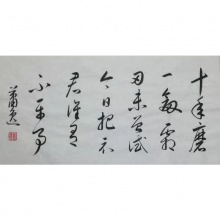 十年磨
一劍霜
刃未曾試
今日把示
君誰有
不平事
蕭